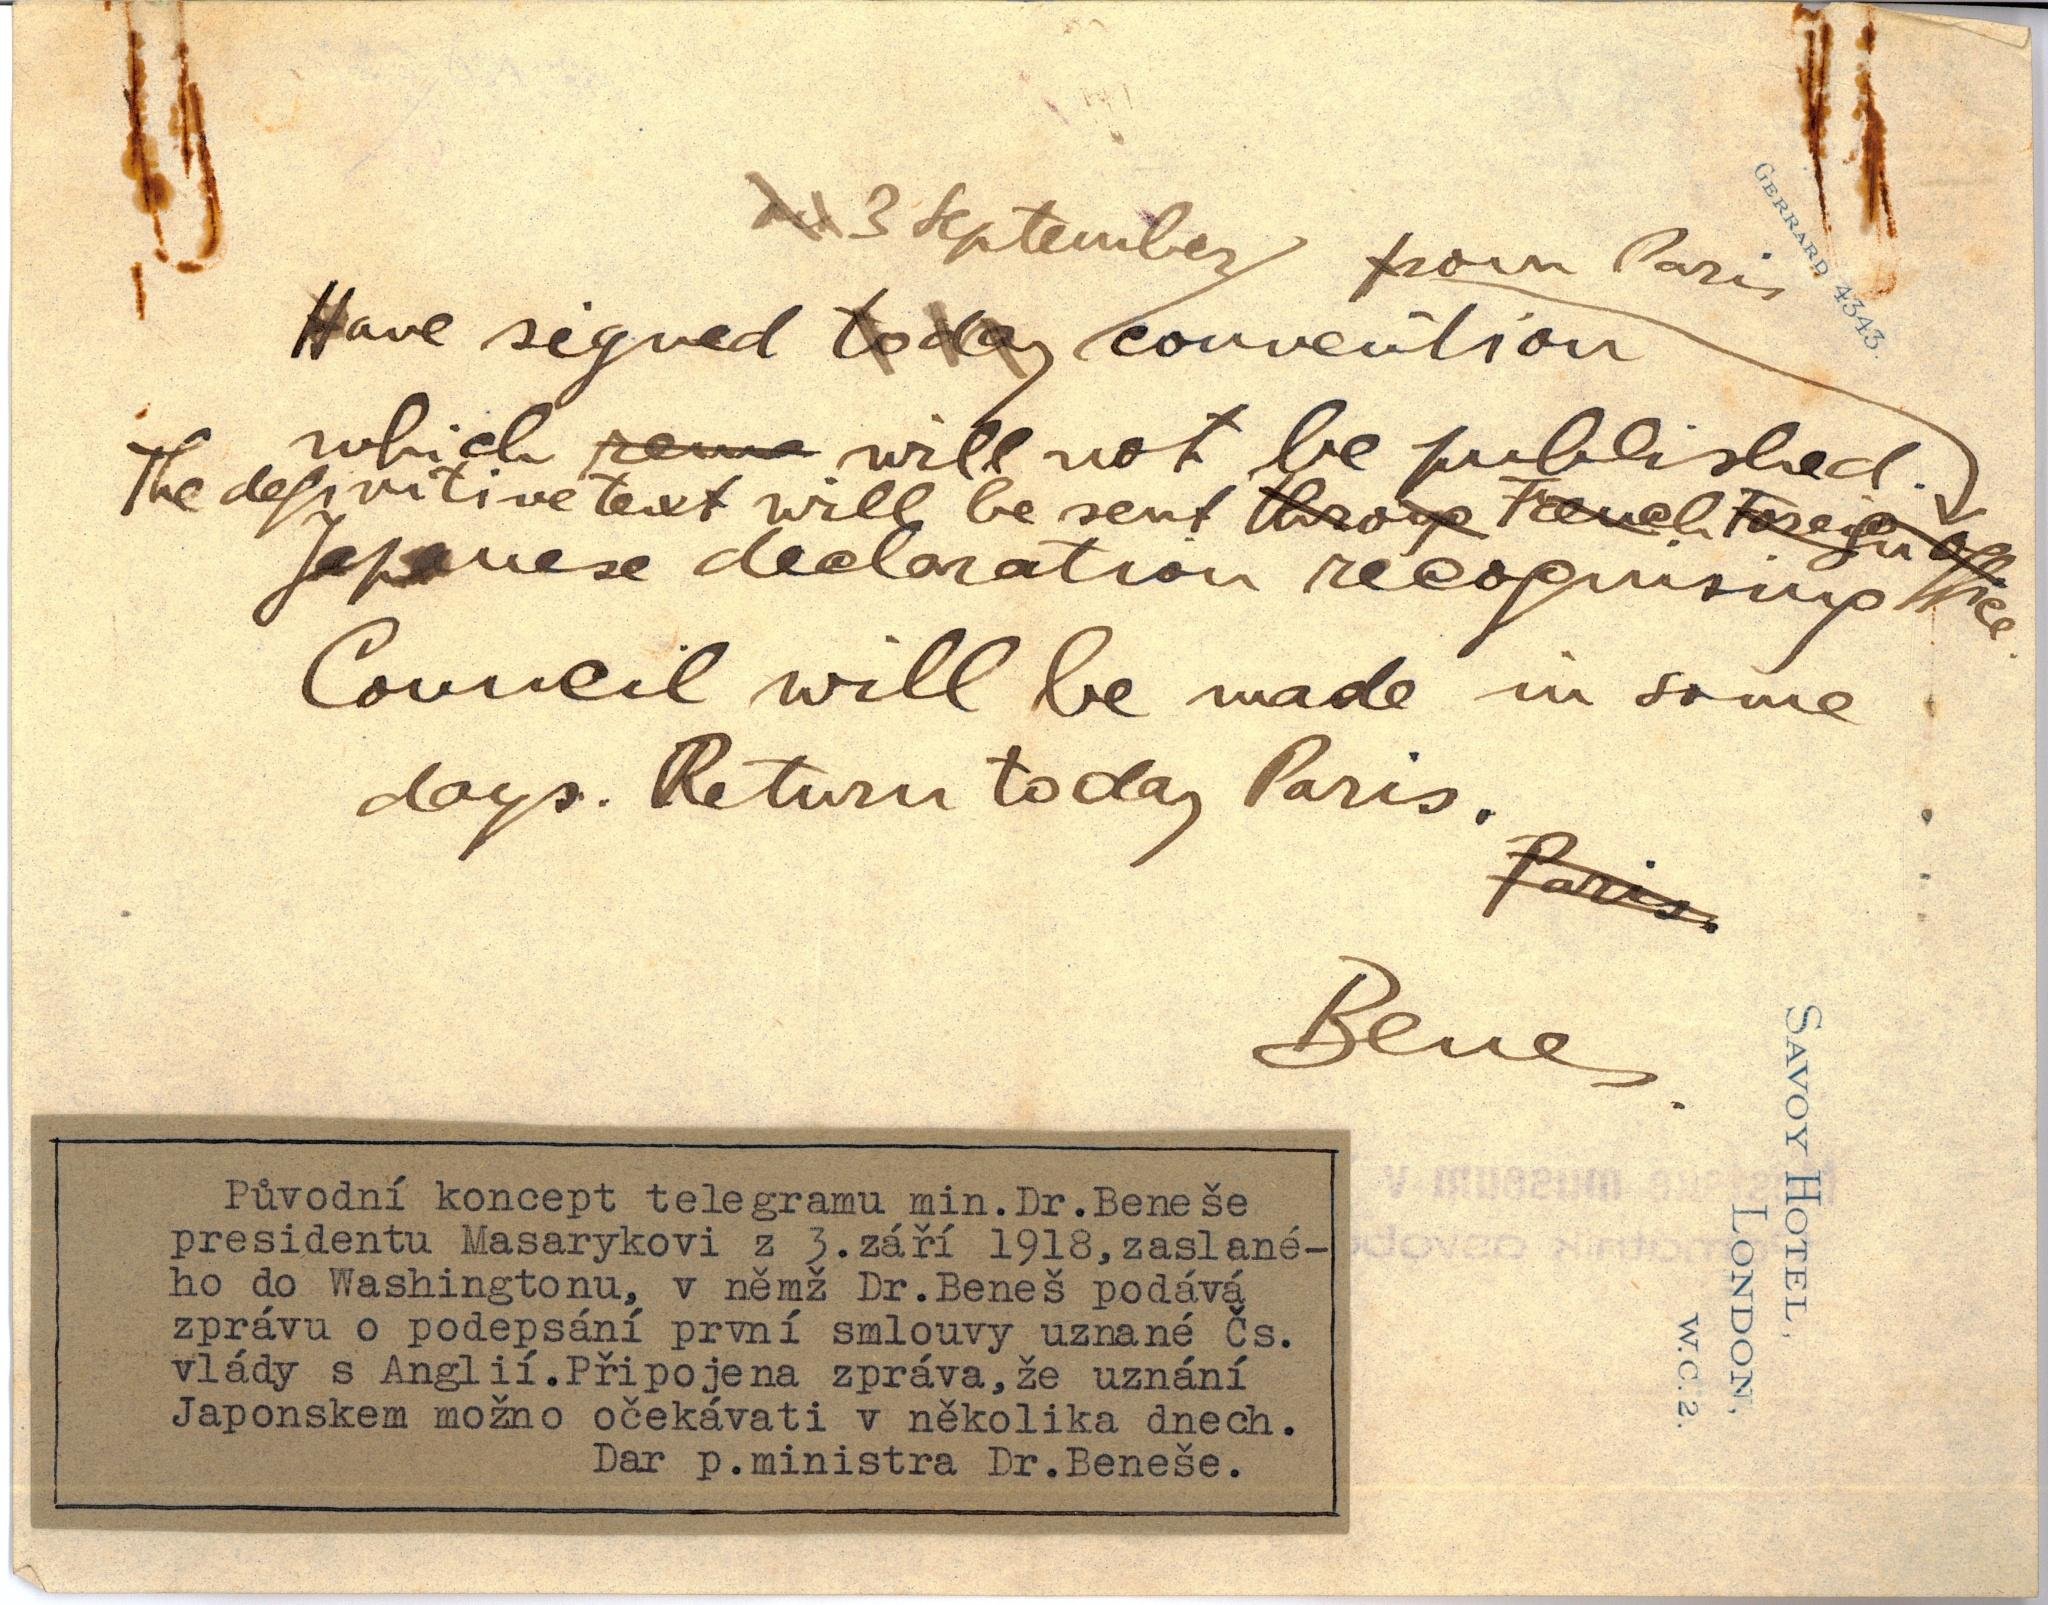 GERRARD 4343.
3 September from Paris
Have signed today convention
which will not be published.
The definitive text will be sent throug French Foreign Office.
Japanese declaration recognising
Council will be made in some
days. Return today Paris.
Paris.
Benes.
SAVOY HOTEL,
LONDON,
W.C.2.
Původní koncept telegramu min.Dr.Beneše
presidentu Masarykovi z 3.září 1918,zaslané-
ho do Washingtonu, v němž Dr.Beneš podává
zprávu o podepsání první smlouvy uznané Čs.
vlády s Anglií.Připojena zpráva,že uznání
Japonskem možno očekávati v několika dnech.
Dar p.ministra Dr.Beneše.